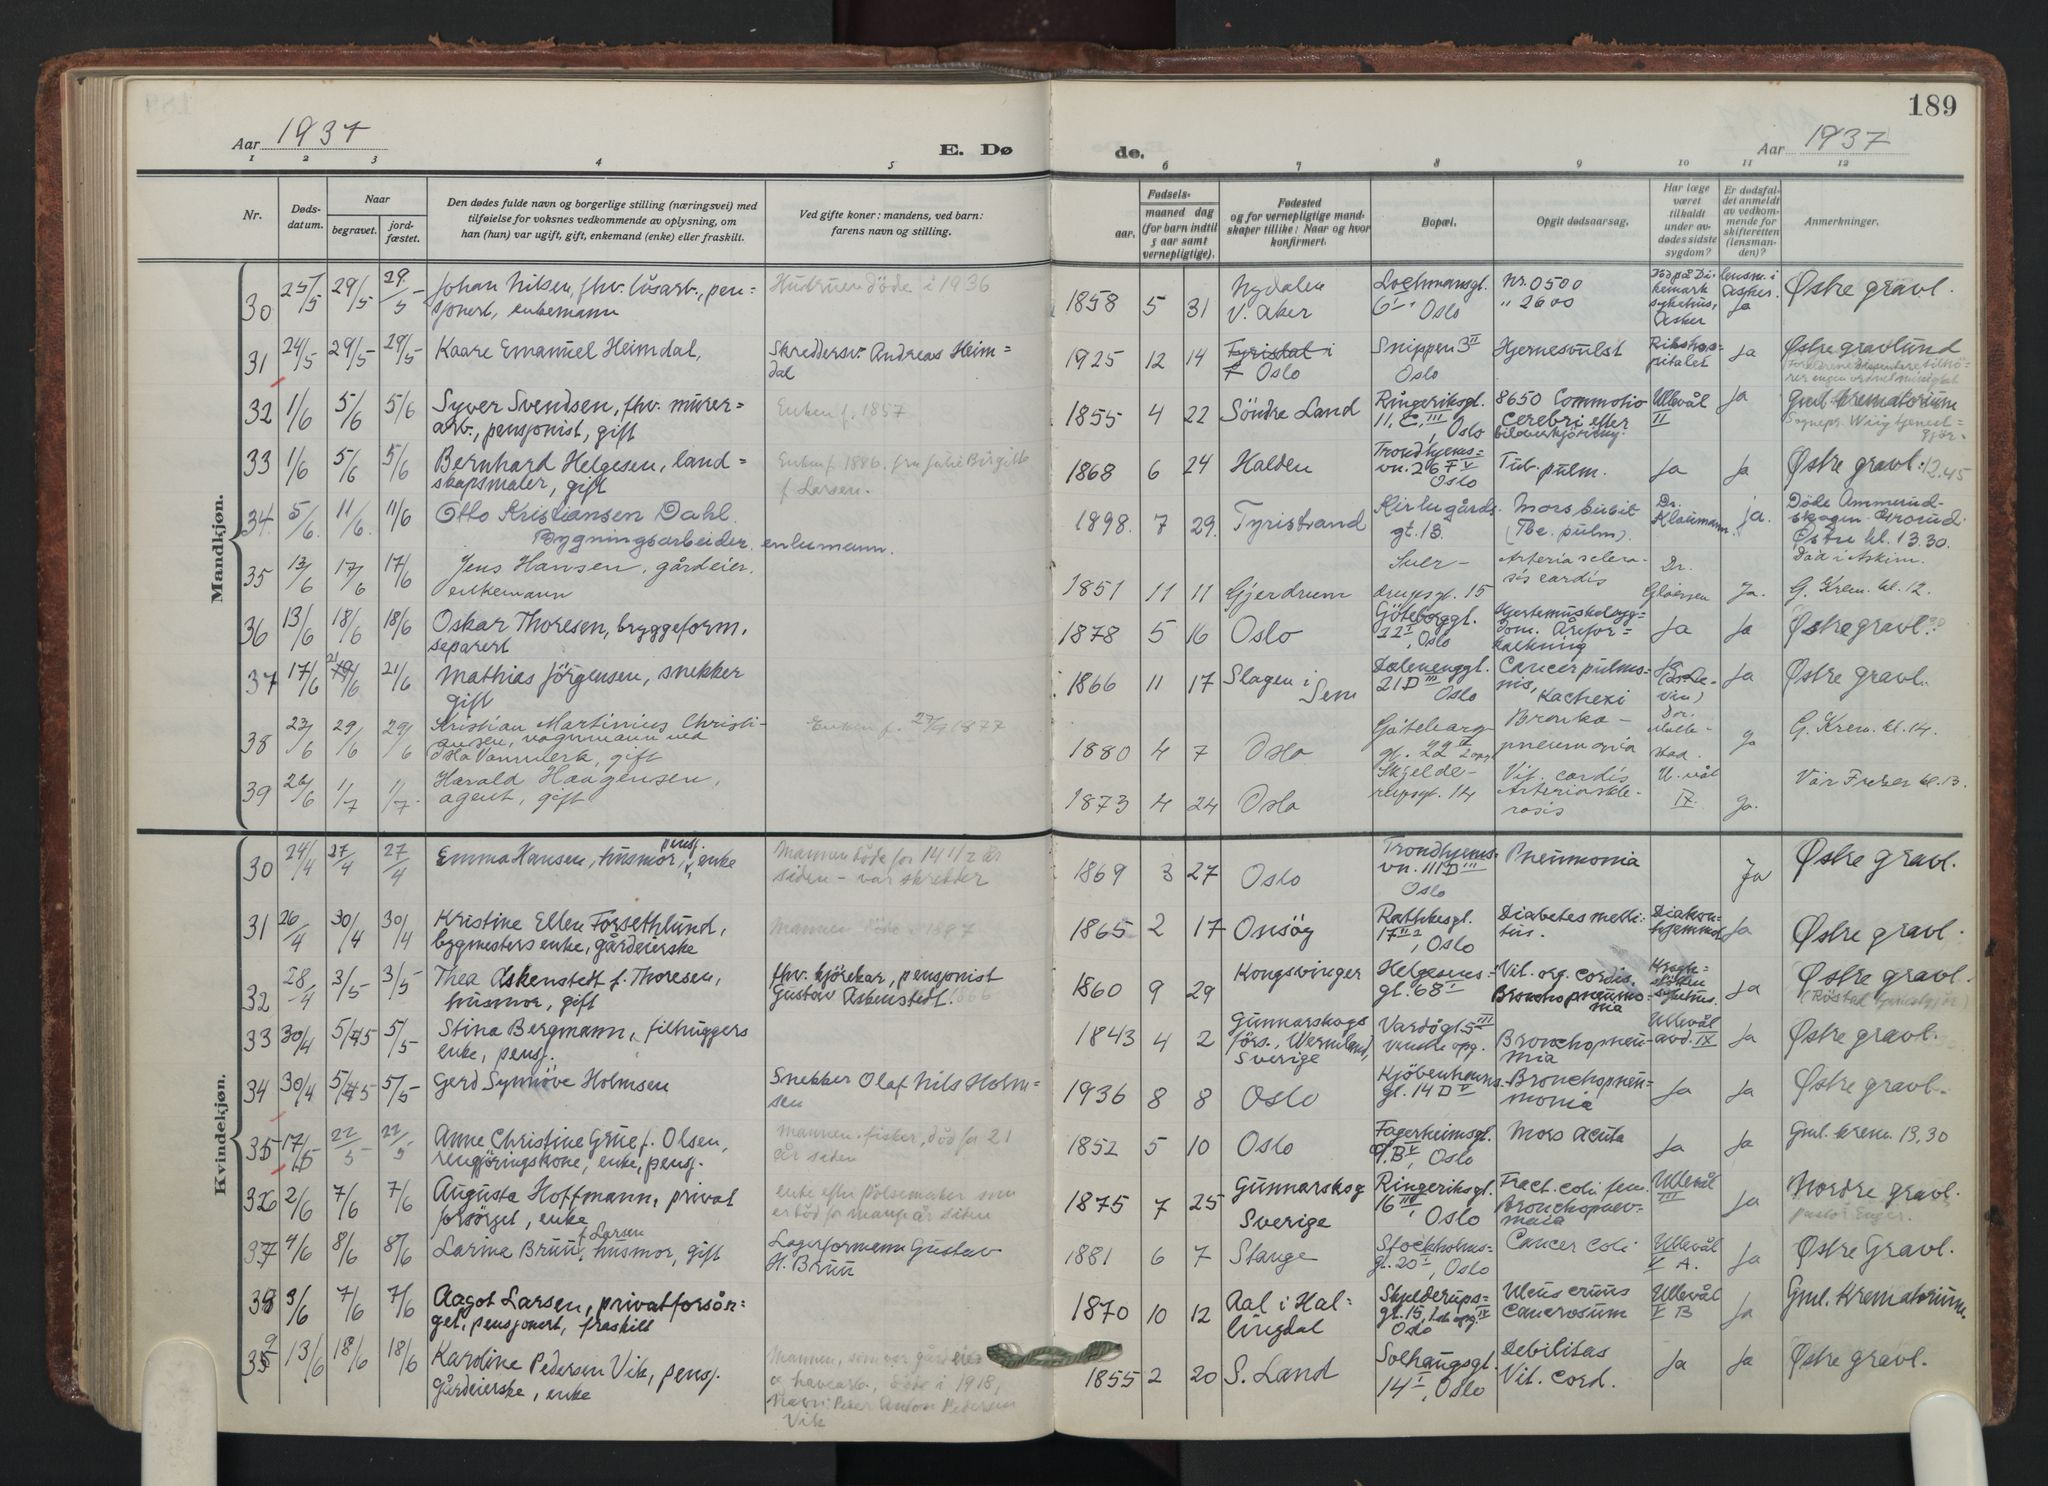 189
Aar 1937
E. Dø
de.
Aar 1937
1 2 3 4 5
6 7 8 9 10 11 12
Nr.
Døds-
datum.
Naar
begravet.
jord-
fæstet.
Den dødes fulde navn og borgerlige stilling (næringsvei) med
tilføielse for voksnes vedkommende av oplysning, om
han (hun) var ugift, gift, enkemand (enke) eller fraskilt.
Ved gifte koner: mandens, ved barn:
farens navn og stilling.
Fødsels-
aar.
maaned dag
(for barn indtil
5 aar samt
vernepligtige).
Fødested
og for vernepligtige mand-
skaper tillike: Naar og hvor
konfirmert.
Bopæl.
Opgit dødsaarsag.
Har læge
været
tilkaldt
under av-
dødes sidste
sygdom?
Er dødsfal-
det anmeldt
av vedkom-
mende for
skifteretten
(lensman-
den)?
Anmerkninger.
Mandkjøn.
30 25/5 29/5 29/5 Johan Nilsen, fhv. låsarb., pen-
sjonert, enkemann
Hustruen döde i 1936
1858 5 31 Nydalen
V. Aker
Lochmannsgt.
6 I, Oslo
Nr. 0500
" 2600
Död på Di-
kemark
sykehus,
Asker
lensm. i
Asker.
Ja
Østre gravl.
31 24/5 29/5 29/5 Kaare Emanuel Heimdal,
Skreddersv. Andreas Heim=
dal
1925 12 14 Tyristal i
Oslo
Snippen 3 II
Oslo
Hjernesvulst
Rikshos-
pitalet
Ja
Østre gravlund
32 1/6 5/6 5/6 Syver Svendsen, fhv. murer=
arb., pensjonist, gift
Enken f. 1857
1855 4 22 Söndre Land
Ringeriksgt.
11, C, III, Oslo
8650 Commotio
Cerebri efter
bilover kjöring.
Ullevål
II
Ja
Gml. krematorium
Sognepr. Wiig tjenest=
gjör.
33 1/6 5/6 5/6 Bernhard Helgesen, land=
skapsmaler, gift
Enken f. 1886. fru Julie Birgitte
f. Larsen.
1868 6 24 Halden
Trondhjems-
vn. 26 F V
Oslo
Tub. pulm.
Ja Ja
Østre gravl. 12.45
34. 5/6 11/6. 11/6 Otto Kristiansen Dahl.
Bygningsarbeider. enkemann.
1898. 7 29. Tyristrand
Kirkegårds
gt. 13.
Mors subit
(Tbc. pulm).
Dr.
Klaumann.
ja.
Döde Ammerud-
skogen Grorud.
Østre kl. 13.30.
35 13/6 17/6 17/6 Jens Hansen, gårdeier.
enkemann
1851 11 11 Gjerdrum
Sver-
drupsgt. 15
Arteria sclero-
sis cardis
Dr.
Gløersen
Ja.
Död i Askim.
G. Krem. kl. 12.
36 13/6 18/6 18/6 Oskar Thoresen, bryggeform.
separert
1878 5 16 Oslo
Göteborggt.
22 I, Oslo
Hjertemuskelsyg=
dom. Årefor=
kalkning
Ja Ja
Østre gravl.
37 17/6 21/6 21/6 Mathias Jörgensen, snekker
gift
1866 11 17 Slagen i
Sem
Dælenenggt.
21 D III Oslo
Cancer pulmo-
nis,
Kachexi
Ja
Østre gravl.
38 23/6 29/6 29/6 Kristian Martinius Christi-
ansen, vognmann ved
Oslo Vannverk, gift
Enken f. 27/9 1877
1880 4 7 Oslo
Göteborg-
gt. 22 II 2 opg.
Bronko-
pneumonia
Dr.
ja
G. Krem. kl. 14.
39 26/6 1/7 1/7 Harald Haagensen,
agent, gift
1873 4 24 Oslo
Skjelde-
rupsgt. 14
Vit. cardis
Arterioskle-
rosis
U. vål
IV.
Ja.
Vår Frelser kl. 13.
Kvindekjøn.
30 24/4 27/4 27/4 Emma Hansen, husmor, pensj., enke
Mannen döde for 14 1/2 år
siden - var skredder
1869 3 27 Oslo
Trondhjems-
vn. 111 D III
Oslo
Pneumonia
Ja
Østre gravl.
31 26/4 30/4 30/4 Kristine Ellen Forsethlund,
bygmesters enke, gårdeierske
Mannen döde 1887
1865 2 17 Onsöy
Rathkesgt.
17 II, Oslo
Diabetes melli-
tus.
Diakon-
hjemmet
Ja
Østre gravl.
32 28/4 3/5 3/5 Thea Askenstedt f. Thoresen,
husmor, gift
fhv. kjörekar, pensjonist
Gustav Askenstedt. 1866
1860 9 29 Kongsvinger
Helgesens-
gt. 68 I
Vit. org. cordis.
Bronchopneumo-
nia
Krogh-
stötten
sykehus.
Ja
Østre gravl.
33 30/4 5/5 5/5 Stina Bergmann, filhuggers
enke, pensj.
1843 4 2 Gunnarskogs
förs., Wermland,
Sverige
Vardögt. 5 III
venstre opg.
Bronchopneu-
monia
Ullevål
avd. IX
Ja
Østre gravl.
34 30/4 5/5 5/5 Gerd Synnöve Holmsen
Snekker Olaf Nils Holm=
sen
1936 8 8 Oslo
Kjöbenhavns-
gt. 14 D V
Bronchopneu-
monia
Ja Ja
Østre gravl.
35 17/5 22/5 22/5 Anne Christine Grue f. Olsen,
rengjöringskone, enke, pensj.
Mannen, fisker, död for 21
år siden
1852 5 10 Oslo
Fagerheimsgt.
9. B V, Oslo
Mors acuta
Ja Ja
Gml. krem. 13,30
36 2/6 7/6 7/6 Augusta Hoffmann, privat
forsörget, enke
enke efter Pölsemaker som
er död for mange år siden
1875 7 25 Gunnarskog
Sverige
Ringeriksgt.
16 III, Oslo
Fract. coli fem.
Bronchopnev-
monia
Ullevål
III
Ja
Nordre gravl.
pastor Enger.
37 4/6 8/6 8/6 Larina Bruu, f. Larsen husmor, gift
Lagerformann Gustav
H. Bruu
1881 6 7 Stange
Stockholms-
gt. 20 I, Oslo
Cancer Coli
Ullevål
V A.
Ja
Østre Gravl.
38 3/6 7/6 7/6 Aagot Larsen, privatforsör-
get, pensjonert, fraskilt
1870 10 12 Aal i Hal-
lingdal
Skjelderups=
gt. 15, 1ste opg. IV
Oslo
Ulcus cruris
cancrosum
Ullevål
V B
Ja
Gml. Krematorium.
39 13/6 18/6 18/6 Karoline Pedersen Vik, pensj.
Gårdeierske, enke
Mannen, som var gårdeier
og havearb., döde i 1918,
Navn: Peter Anton Pedersen
Vik
1855 2 20 S. Land
Solhaugsgt.
14 I, Oslo
Debilitas
Vit. Cord.
Ja Ja
Østre gravl.